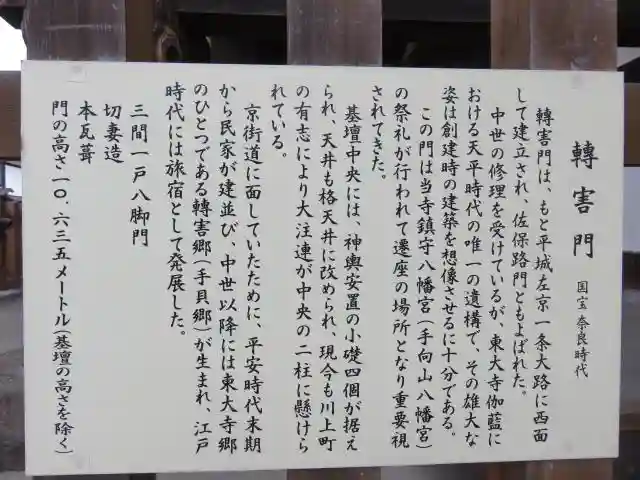 轉害門
国宝 奈良時代
轉害門は、もと平城左京一条大路に西面
して建立され、佐保路門ともよばれた。
中世の修理を受けているが、東大寺伽藍に
おける天平時代の唯一の遺構で、その雄大な
姿は創建時の建築を想像させるに十分である。
この門は当寺鎮守八幡宮(手向山八幡宮)
の祭礼が行われて遷座の場所となり重要視
されてきた。
基壇中央には、神輿安置の小礎四個が据え
られ、天井も格天井に改められ、現今も川上町
の有志により大注連が中央の二柱に懸けら
れている。
京街道に面していたために、平安時代末期
から民家が建並び、中世以降には東大寺郷
のひとつである轉害郷(手貝郷)が生まれ、江戸
時代には旅宿として発展した。
三間一戸八脚門
切妻造
本瓦葺
門の高さ一〇．六三五メートル(基壇の高さを除く)